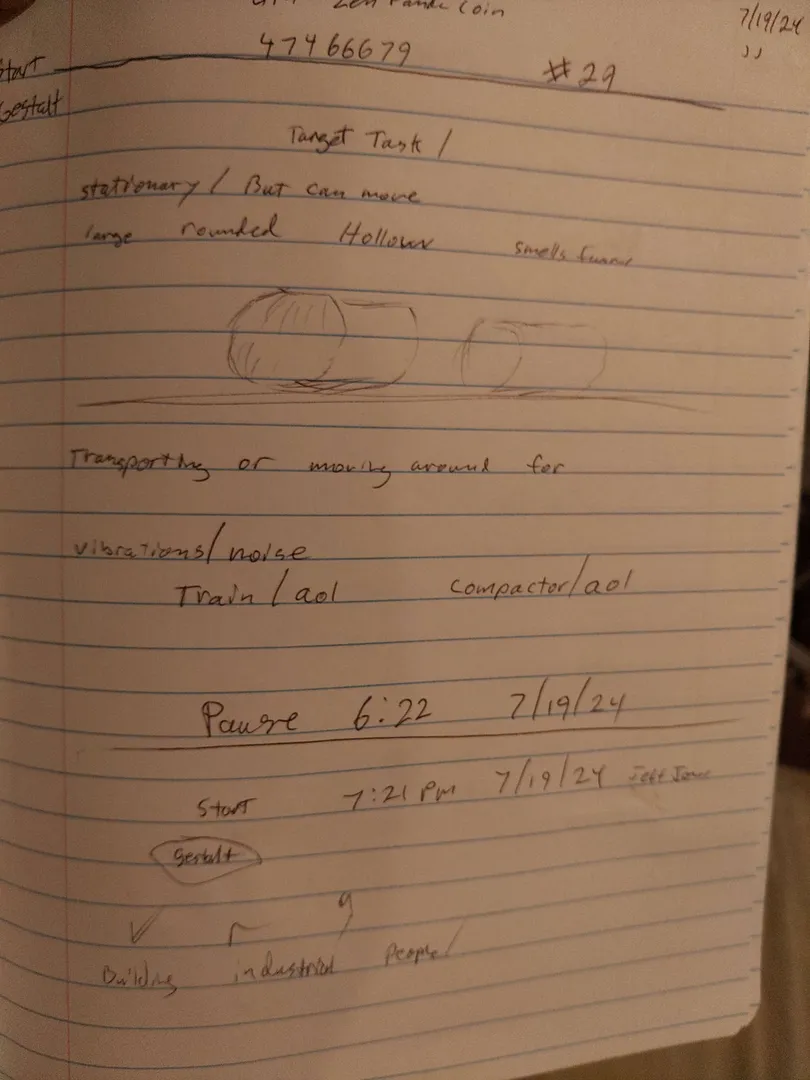 Coin
7/19/24
47466679
JJ
Start
#29
Gestalt
Target Task /
stationary / But can move
large rounded Hollow smells
Transporting or moving around for
vibrations/noise
Train / aol compactor/aol
Pause 6:22 7/19/24
Start 7:21 PM 7/19/24 Jeff
gestalt
Building industrial People/